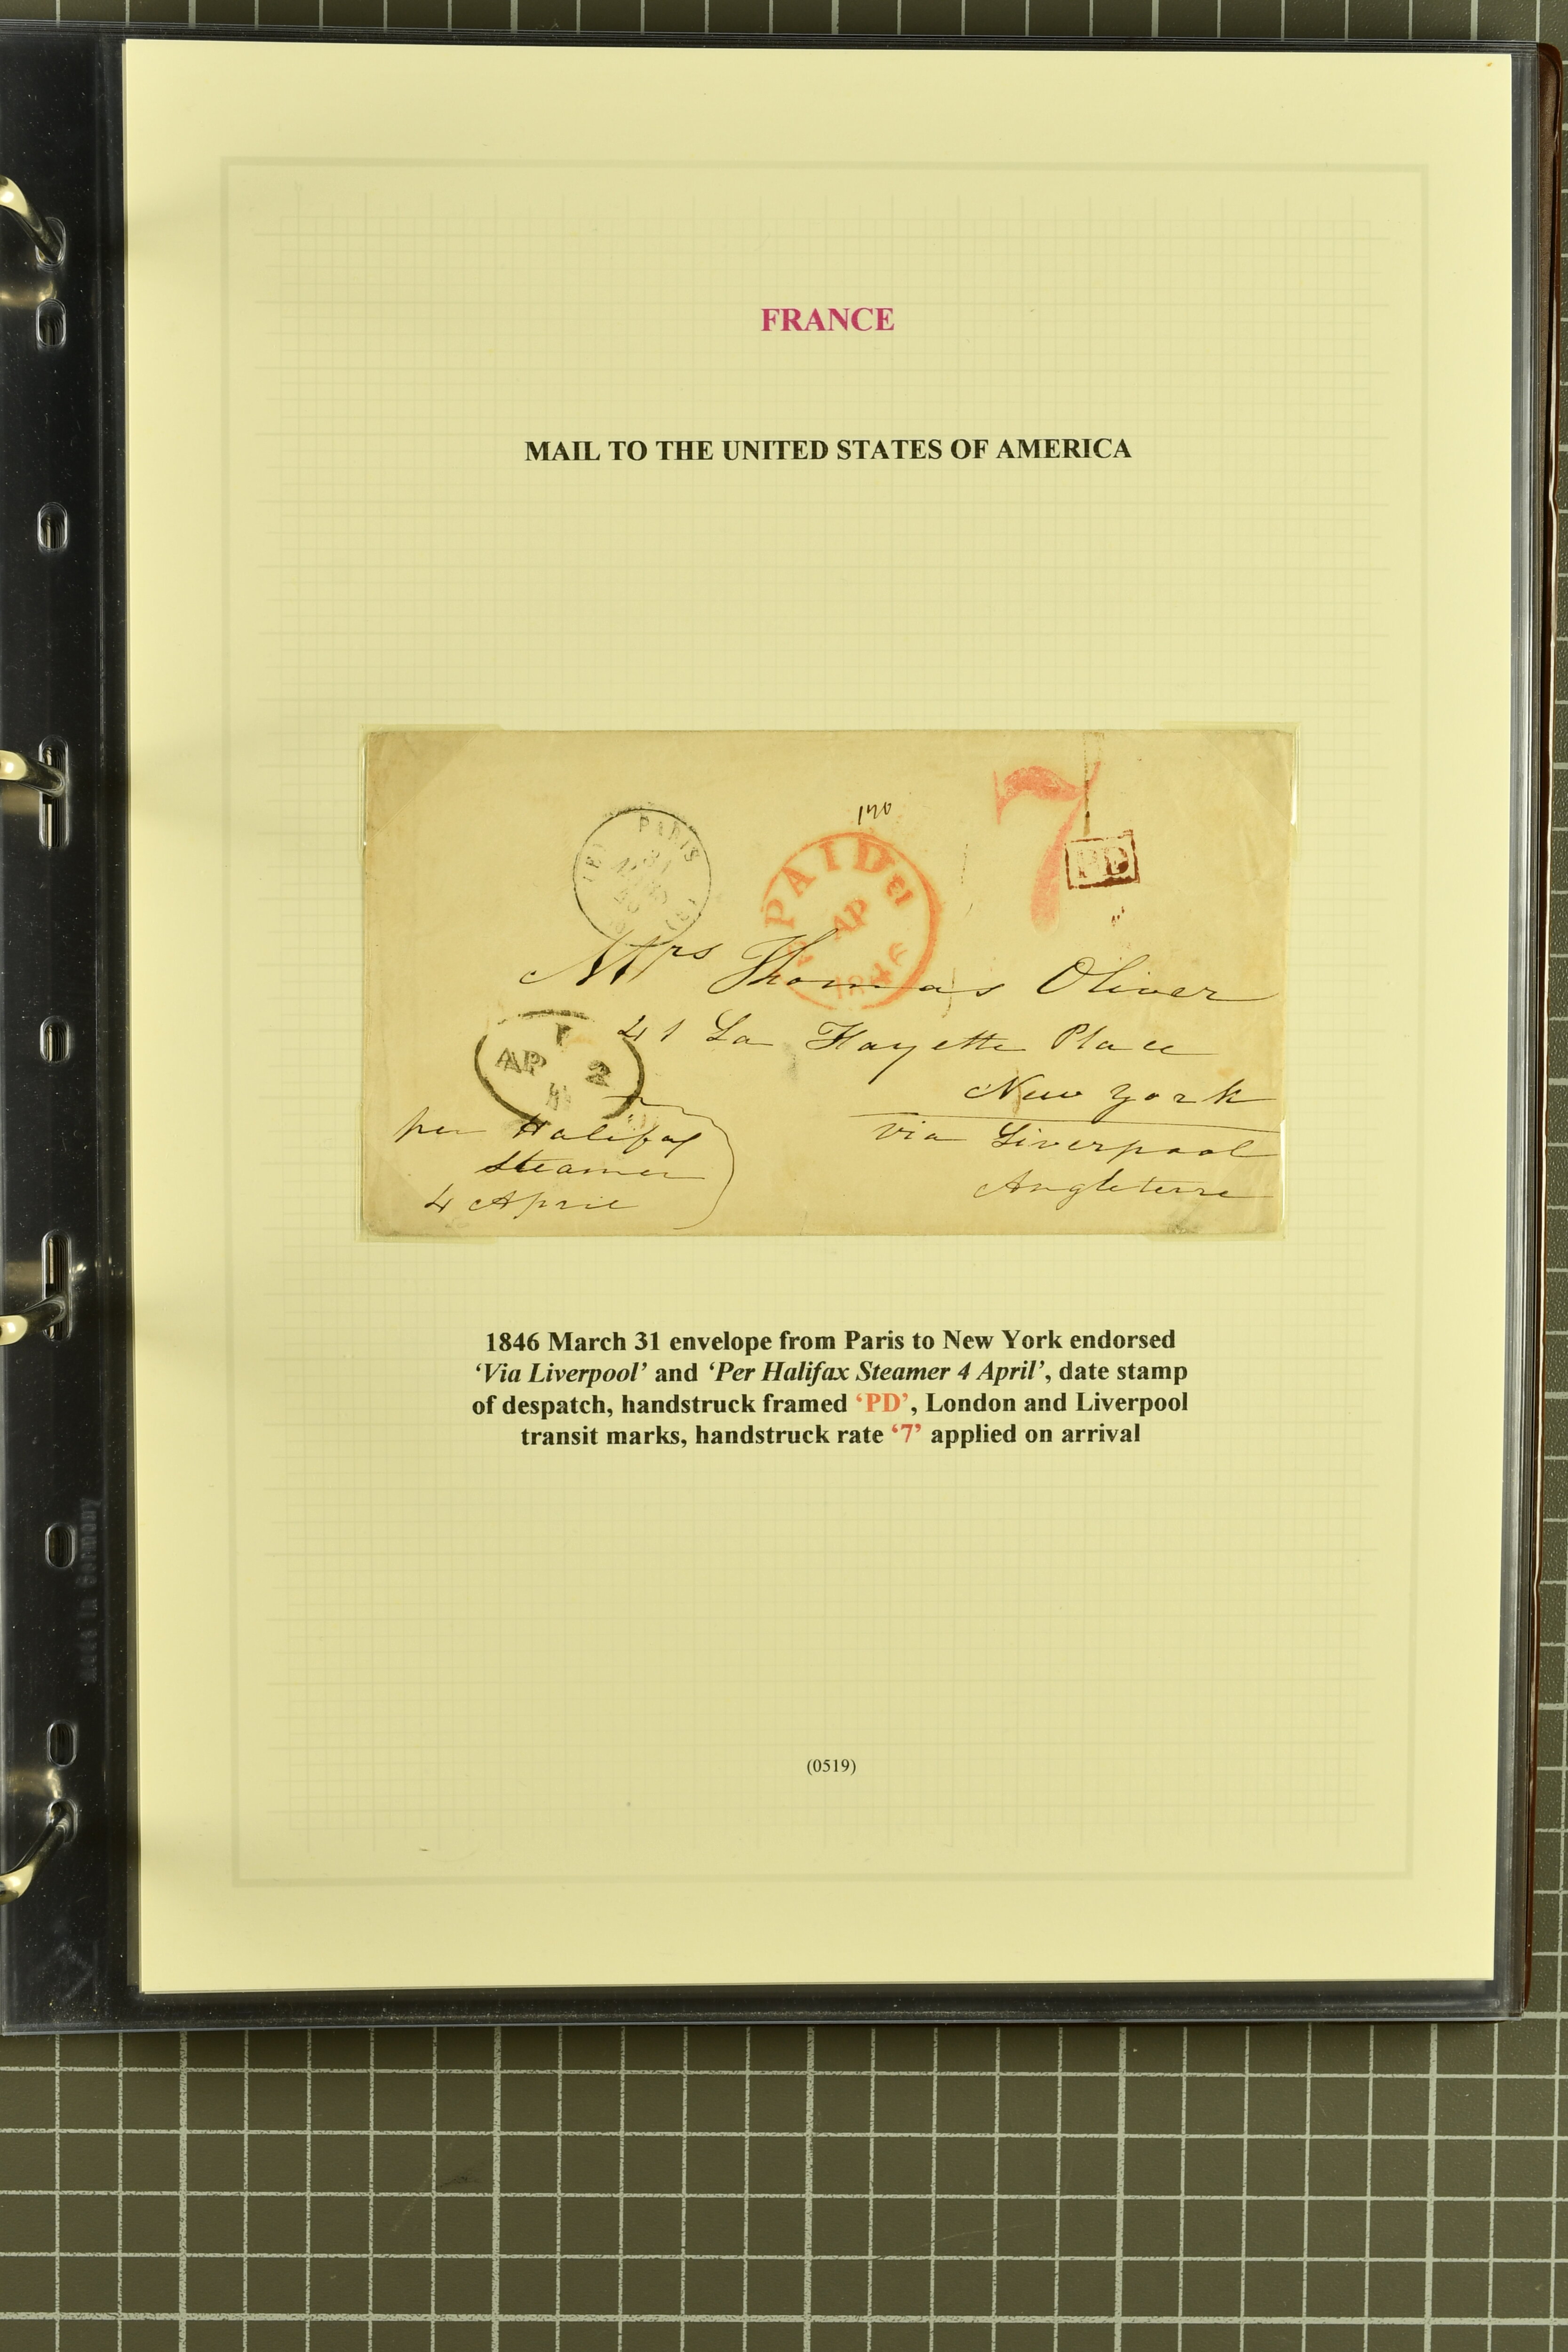 FRANCE
MAIL TO THE UNITED STATES OF AMERICA
140
7
PARIS
31
PAID
AP
1846
PD
Mrs Thomas Oliver
41 La Fayette Place
New York
via Liverpool
Angleterre
AP 2
per Halifax
Steamer
4 April
1846 March 31 envelope from Paris to New York endorsed
‘Via Liverpool’ and ‘Per Halifax Steamer 4 April’, date stamp
of despatch, handstruck framed ‘PD’, London and Liverpool
transit marks, handstruck rate ‘7’ applied on arrival
(0519)
Made in Germany